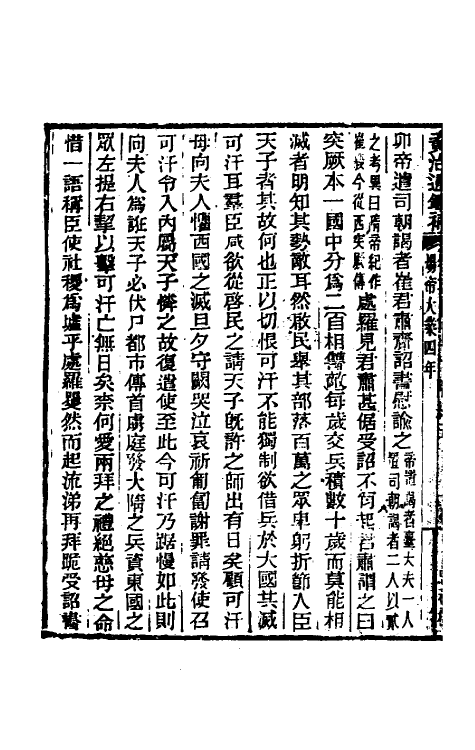 資治通鑑補 煬帝大業四年
卯帝遣司朝謁者崔君肅齎詔書慰諭之帝置謁者臺大夫一人置司朝謁者二人以貳
之考異曰隋帝紀作崔毅今從西突厥傳處羅見君肅甚倨受詔不肯起君肅謂之曰
突厥本一國中分爲二自相讐敵每歲交兵積數十歲而莫能相
滅者明知其勢敵耳然啟民舉其部落百萬之眾卑躬折節入臣
天子者其故何也正以切恨可汗不能獨制欲借兵於大國共滅
可汗耳羣臣咸欲從啓民之請天子既許之師出有日矣顧可汗
母向夫人懼西國之滅旦夕守闕哭泣哀祈匍匐謝罪請發使召
可汗令入內屬天子憐之故復遣使至此今可汗乃踞慢如此則
向夫人爲誑天子必伏尸都市傳首虜庭發大隋之兵資東國之
眾左提右挈以擊可汗亡無日矣奈何愛兩拜之禮絕慈母之命
惜一語稱臣使社稷爲墟乎處羅矍然而起流涕再拜跪受詔書